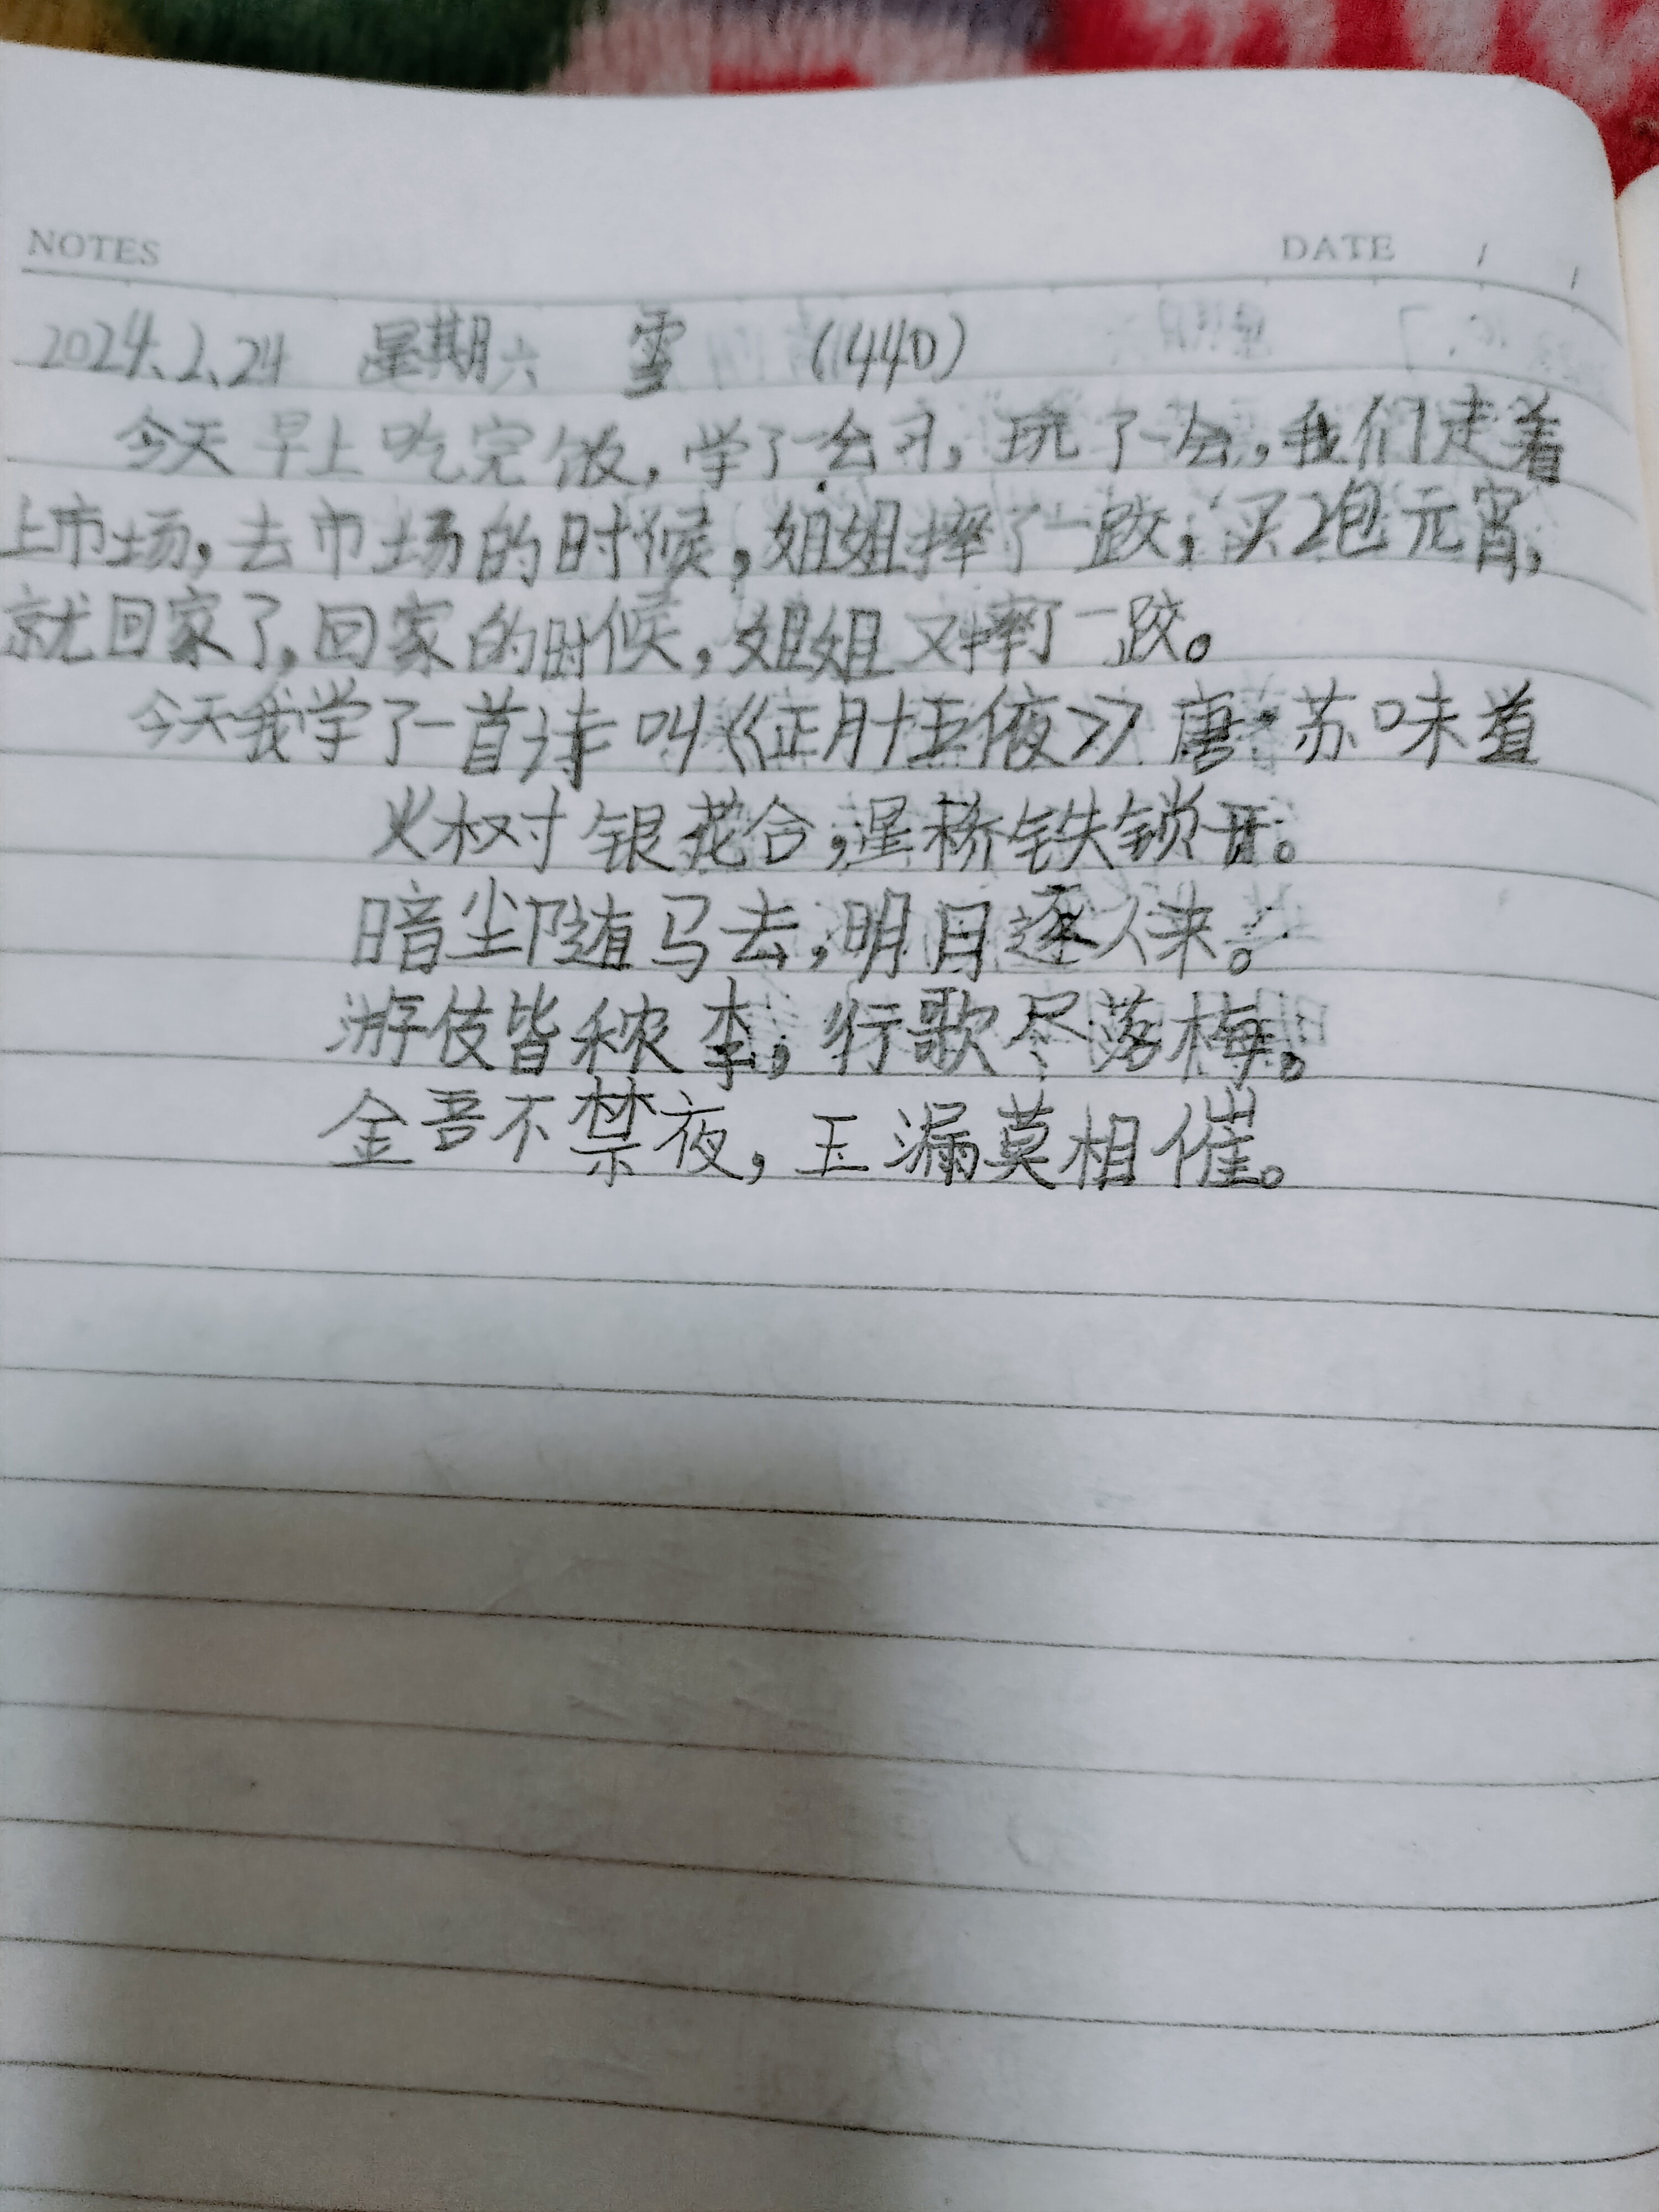 NOTES DATE / /
2024.2.24 星期六 雪 (440)
今天早上吃完饭，学了会习，玩了一会，我们走着
上市场，去市场的时候，姐姐摔了一跤，买2包元宵，
就回家了，回家的时候，姐姐又摔了一跤。
今天我学了一首诗叫《正月十五夜》唐·苏味道
火树银花合，星桥铁锁开。
暗尘随马去，明月逐人来。
游伎皆秾李，行歌尽落梅。
金吾不禁夜，玉漏莫相催。